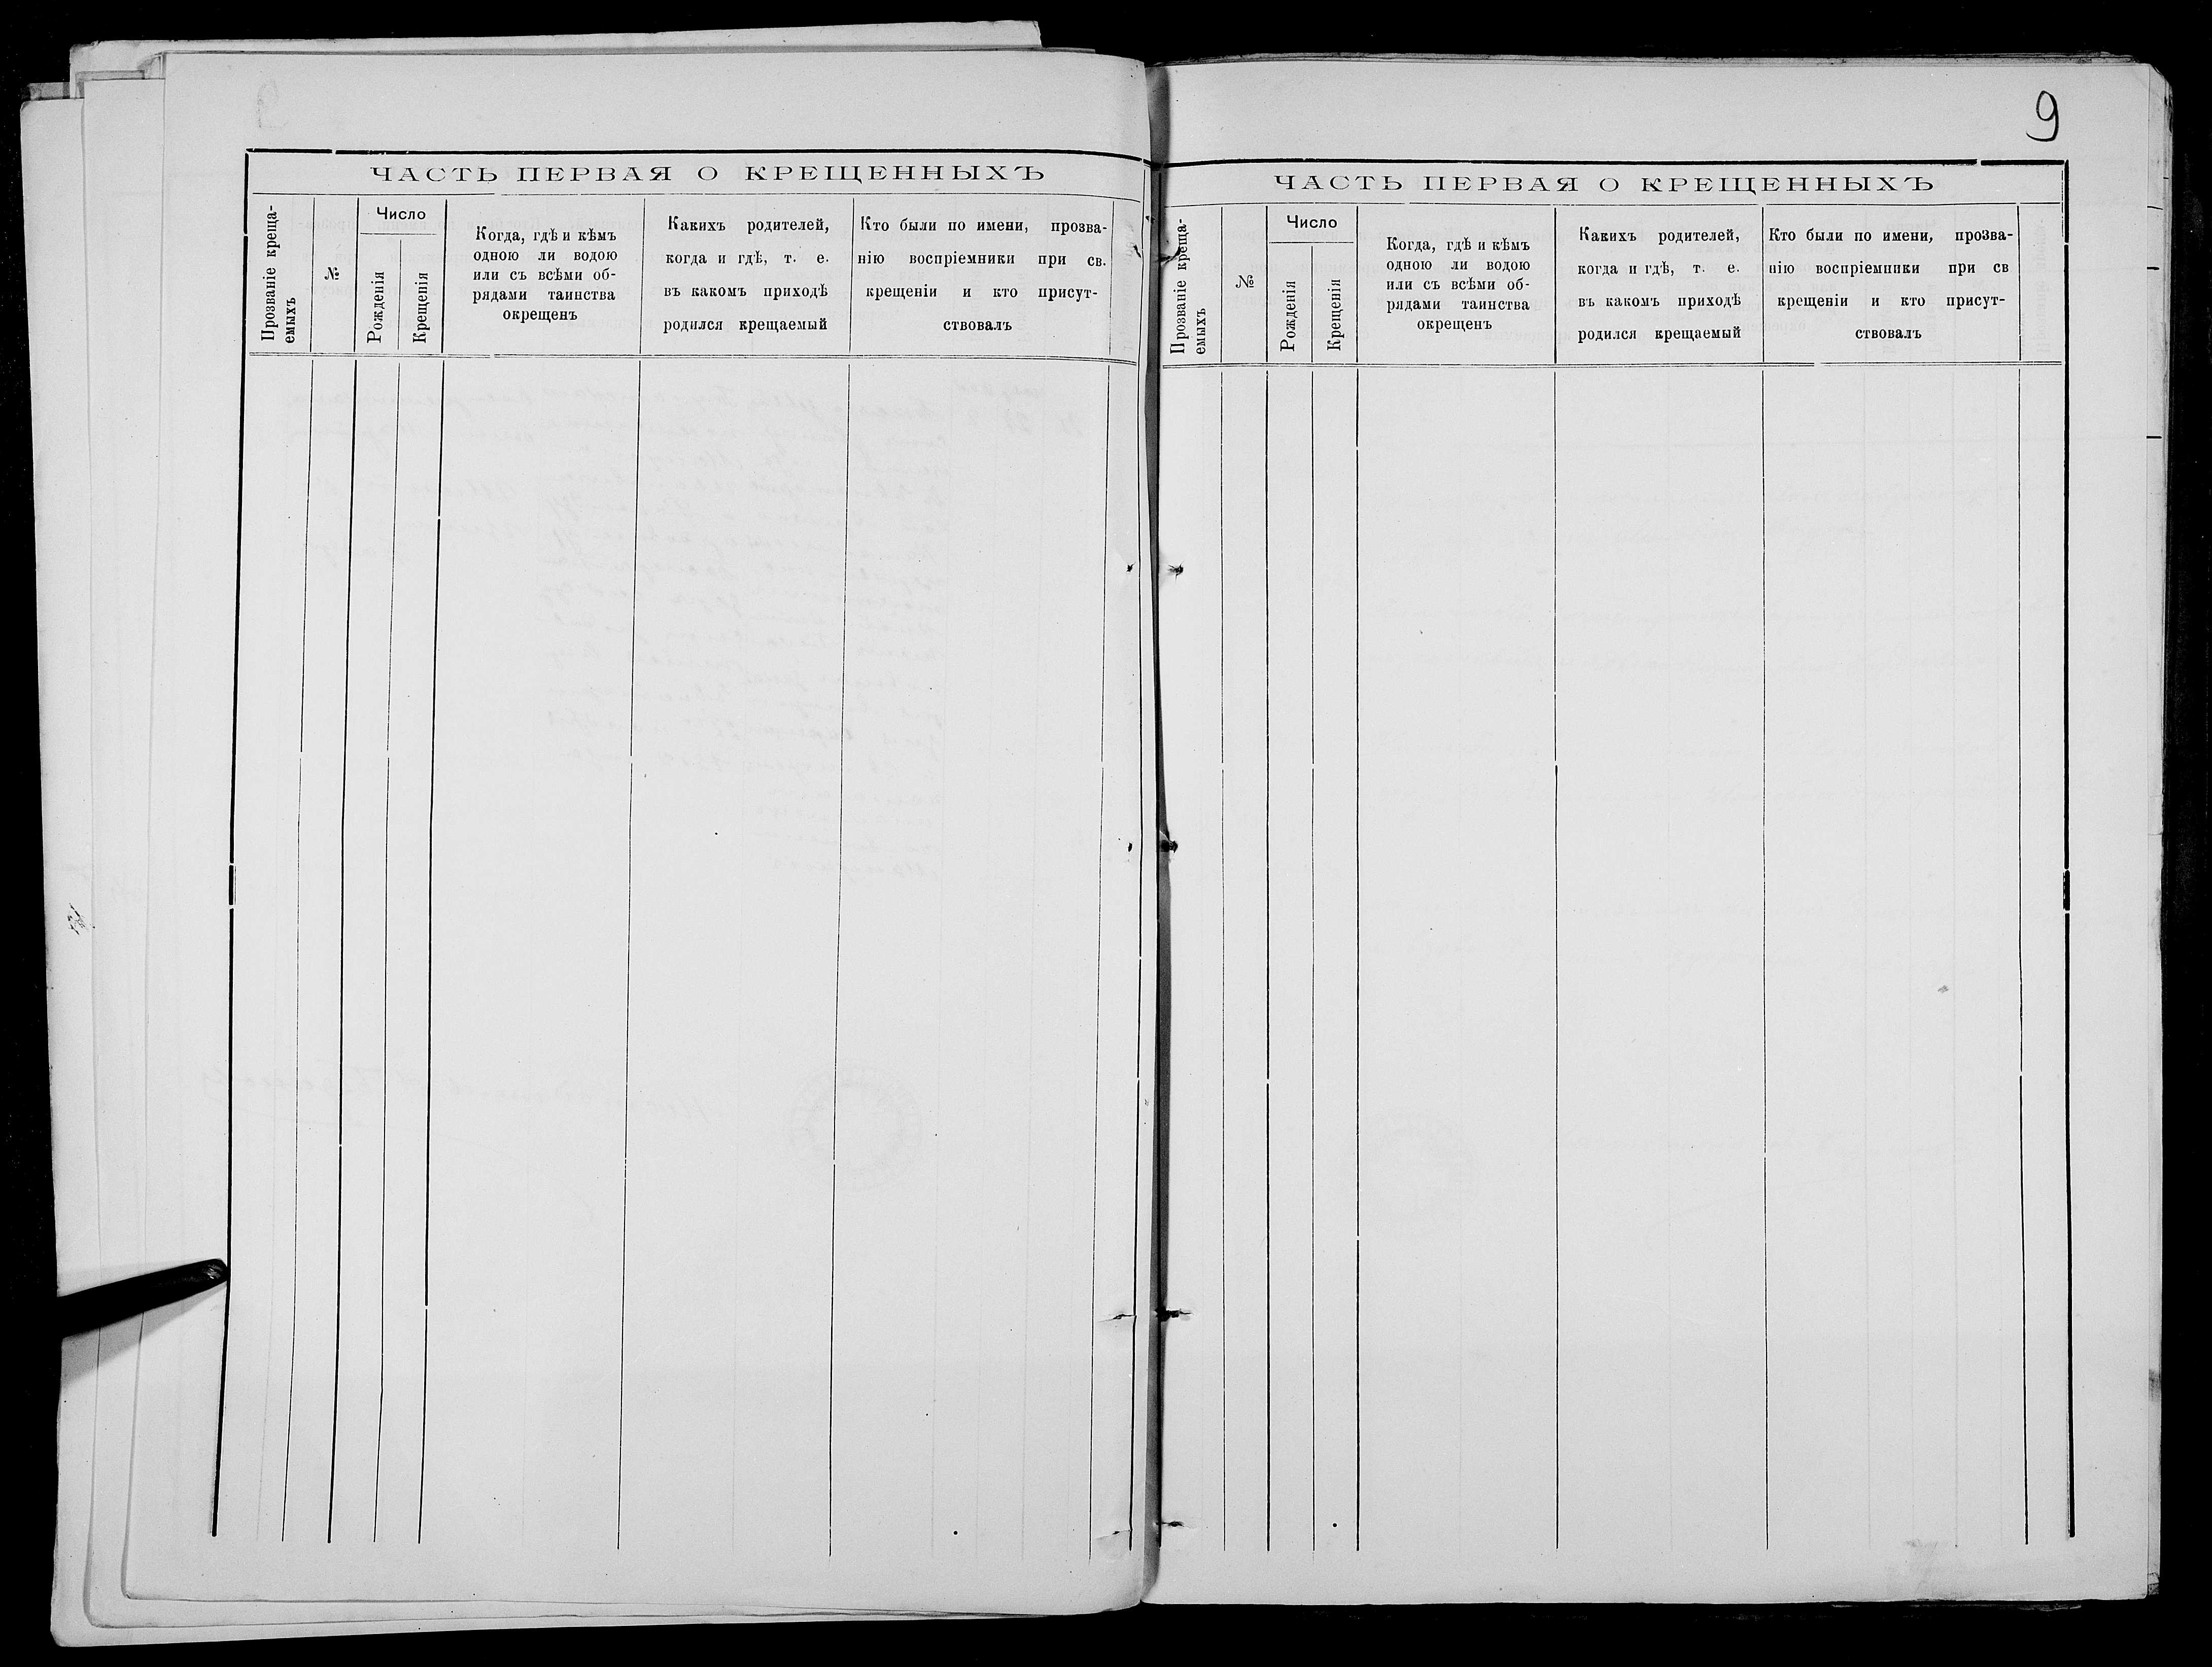 9
ЧАСТЬ ПЕРВАЯ О КРЕЩЕННЫХЪ
Прозваніе креща-
емыхъ
№
Число
Рожденія
Крещенія
Когда, гдѣ и кѣмъ
одною ли водою
или съ всѣми об-
рядами таинства
окрещенъ
Какихъ родителей,
когда и гдѣ, т. е.
въ какомъ приходѣ
родился крещаемый
Кто были по имени, прозва-
нію воспріемники при св.
крещеніи и кто присут-
ствовалъ
ЧАСТЬ ПЕРВАЯ О КРЕЩЕННЫХЪ
Прозваніе креща-
емыхъ
№
Число
Рожденія
Крещенія
Когда, гдѣ и кѣмъ
одною ли водою
или съ всѣми об-
рядами таинства
окрещенъ
Какихъ родителей,
когда и гдѣ, т. е.
въ какомъ приходѣ
родился крещаемый
Кто были по имени, прозва-
нію воспріемники при св
крещеніи и кто присут-
ствовалъ